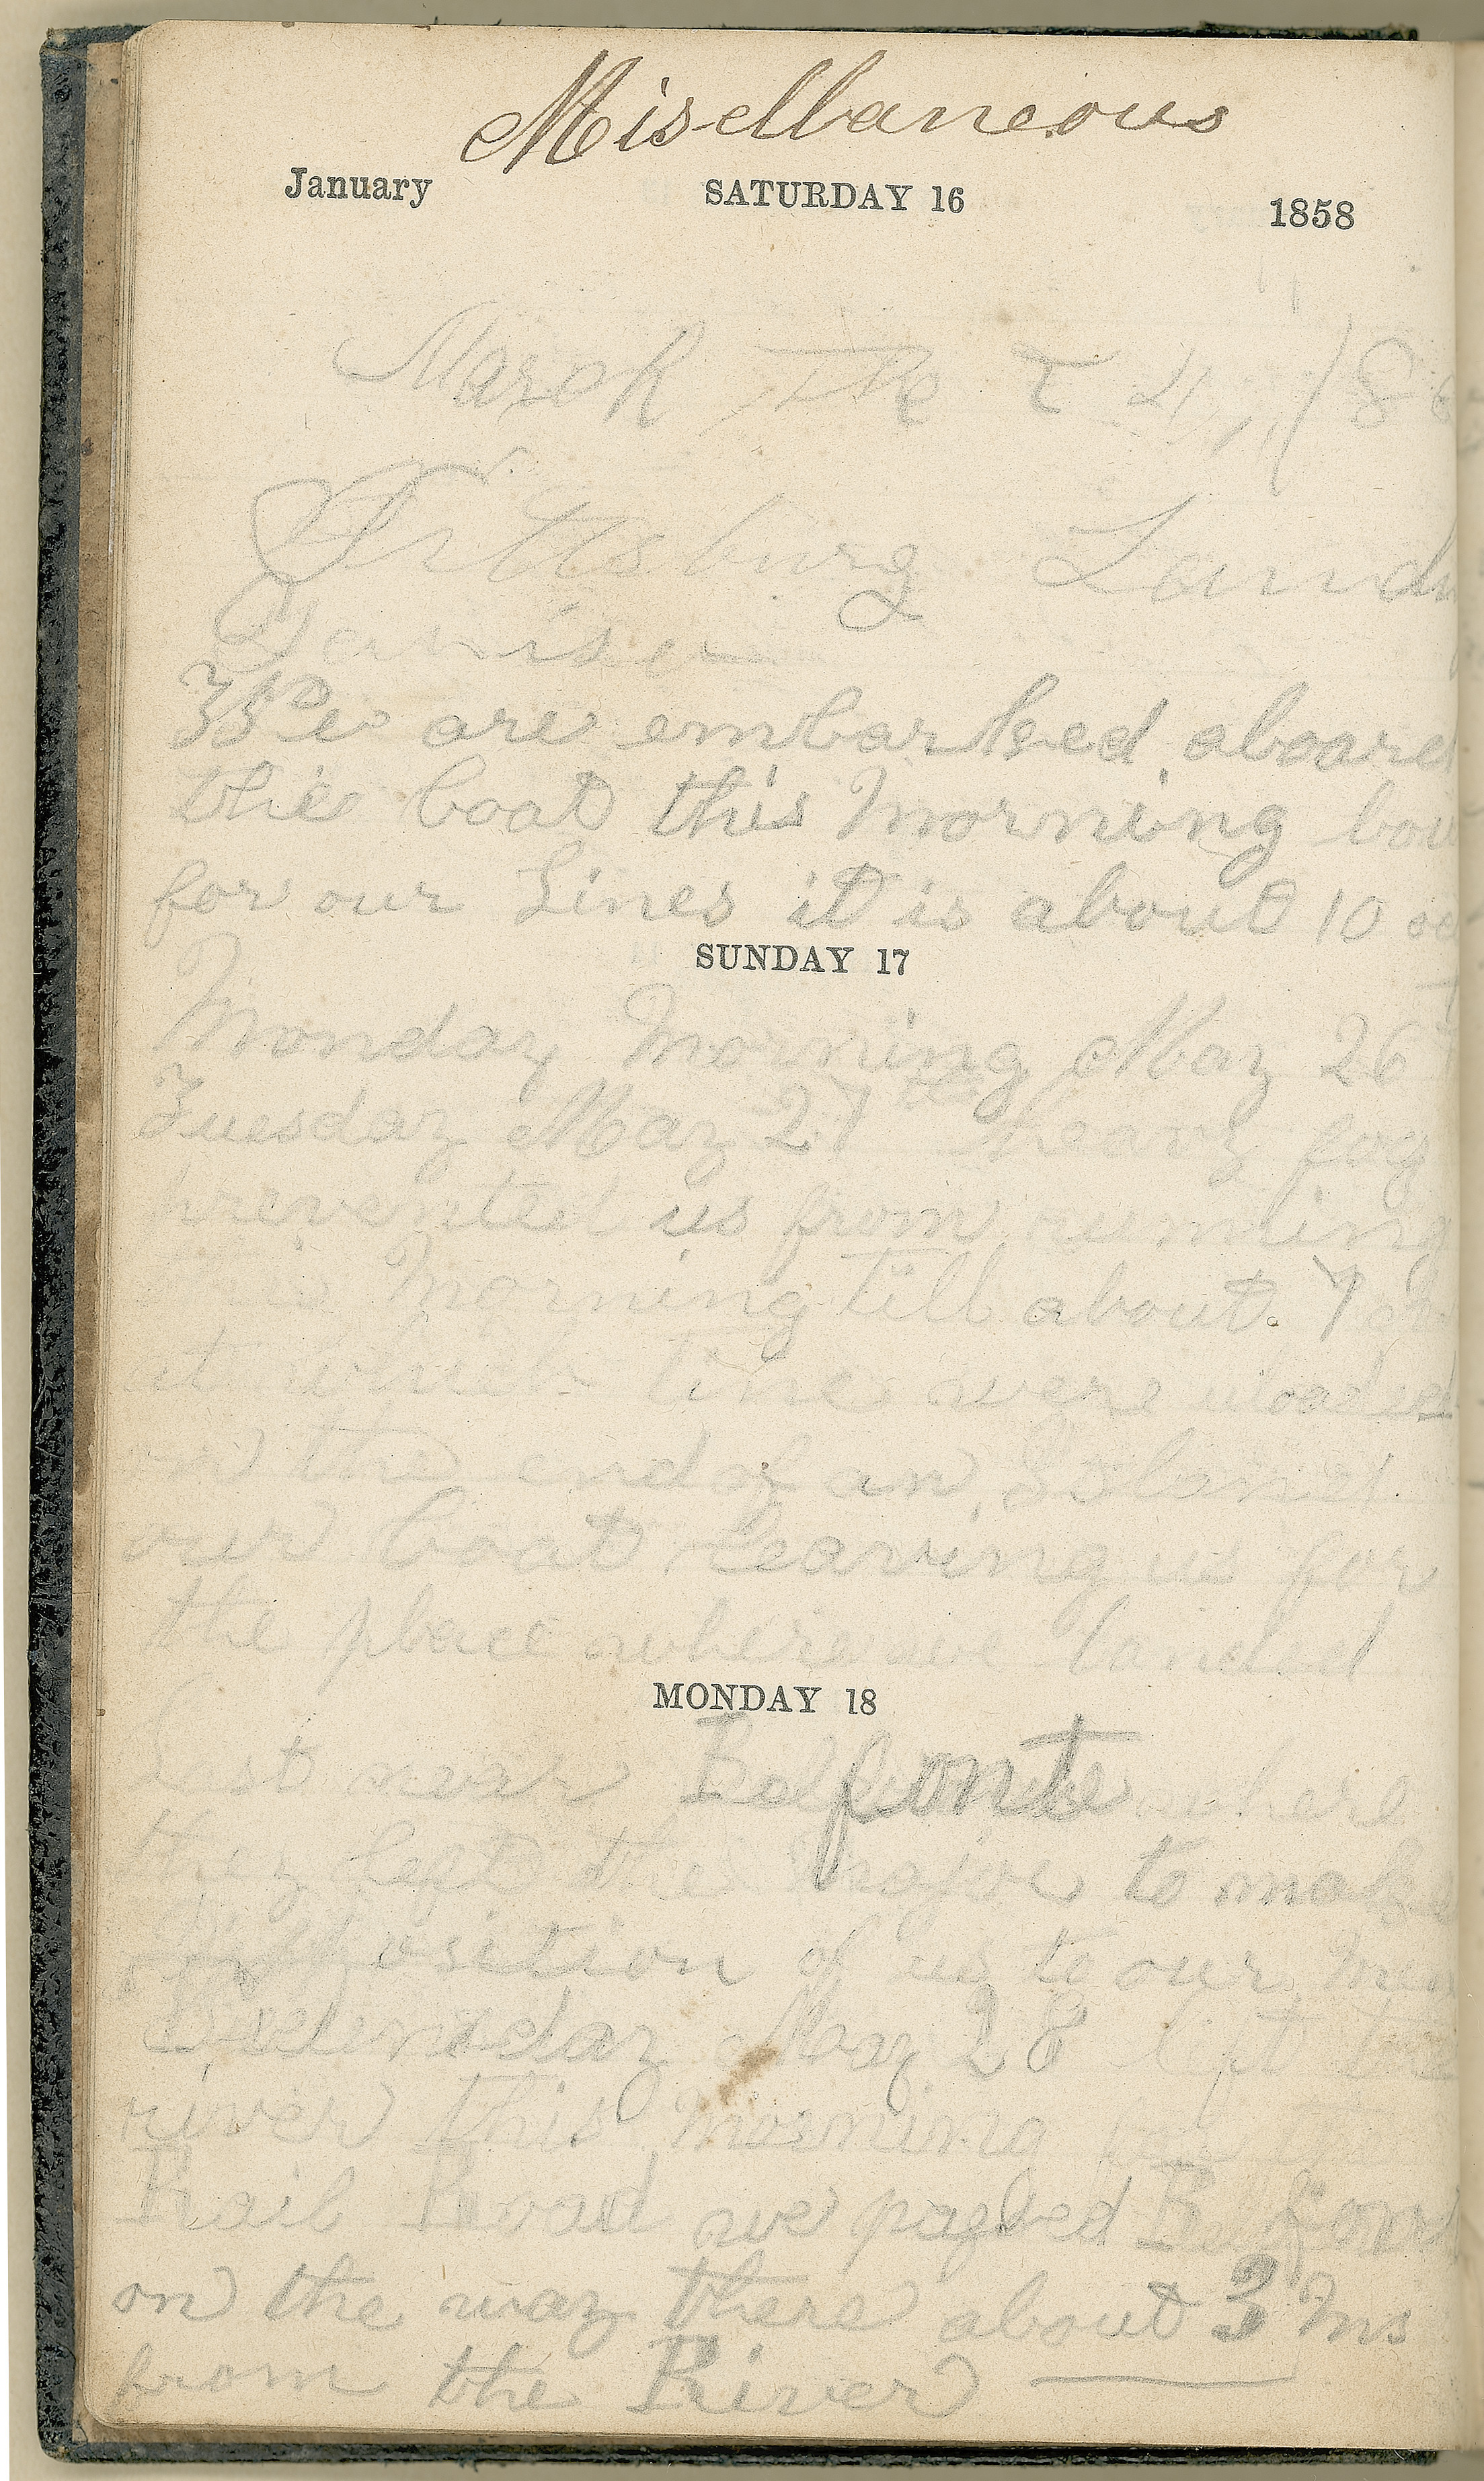 Misellaneous
January SATURDAY 16 1858
March The 24, 18
Pittsburg Land
are embarked aboard
the boat this Morning bou
for our Lines it is about 10 oc
SUNDAY 17
Monday Morning May 26
Tuesday May 27 heavy fog
prevented us from running
this Morning till about 7 ck
at which time were
on the end of an Island
our boat leaving us for
the place where we landed
MONDAY 18
last near fonte where
they left the major to make
disposition of us to our Men
Wednesday May 28 left the
river this morning for the
Rail Road we passed B font
on the way there about 3 Ms
from the River